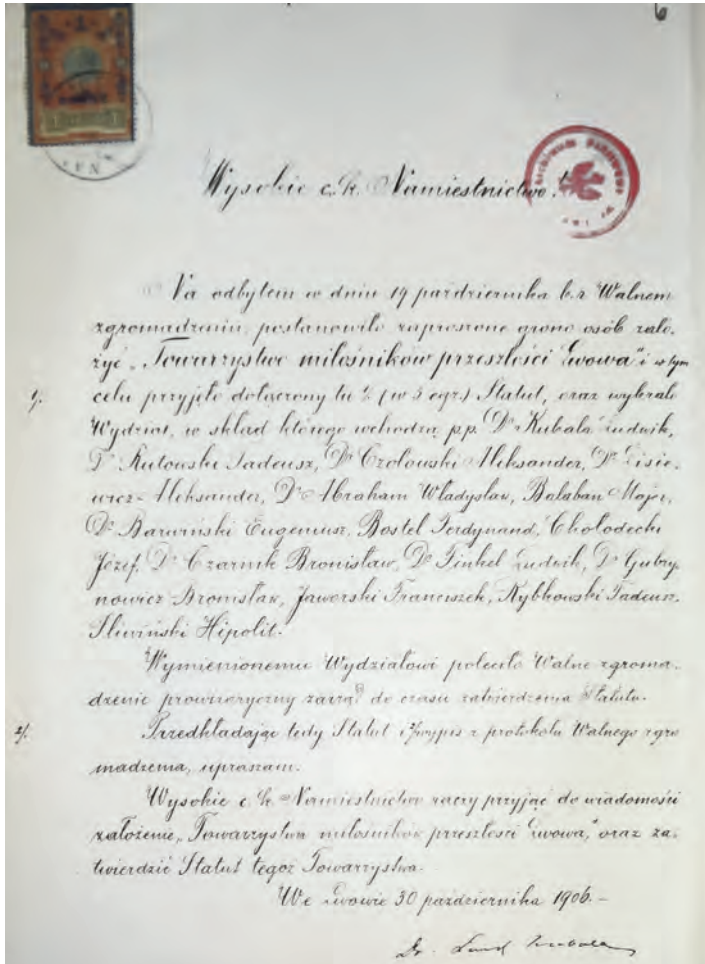 6
Wysokie c. k. Namiestnictwo!
Na odbytem w dniu 19 października b.r. Walnem
zgromadzeniu, postanowiło zaproszone grono osób zało-
żyć „Towarzystwo miłośników przeszłości Lwowa" i w tym
1/. celu przyjęło dołączony tu 1/. (w 5 egz.) Statut, oraz wybrało
Wydział, w skład którego wchodzą pp. Dr Kubala Ludwik,
Dr Rutowski Tadeusz, Dr Czołowski Aleksander, Dr Lisie-
wicz Aleksander, Dr Abraham Władysław, Bałaban Majer,
Dr Barwiński Eugeniusz, Bostel Ferdynand, Chołodecki
Józef, Dr Czarnik Bronisław, Dr Finkel Ludwik, Dr Gubry-
nowicz Bronisław, Jaworski Franciszek, Rybkowski Tadeusz,
Śliwiński Hipolit.
Wymienionemu Wydziałowi poleciło Walne zgroma-
dzenie prowizoryczny zarząd do czasu zatwierdzenia Statutu.
2/. Przedkładając tedy Statut i 2/ wypis z protokołu Walnego zgro
madzenia, upraszam:
Wysokie c. k. Namiestnictwo raczy przyjąć do wiadomości
założenie „Towarzystwa miłośników przeszłości Lwowa," oraz za-
twierdzić Statut tegoż Towarzystwa.
We Lwowie 30 października 1906. –
Dr. Ludw Kubala